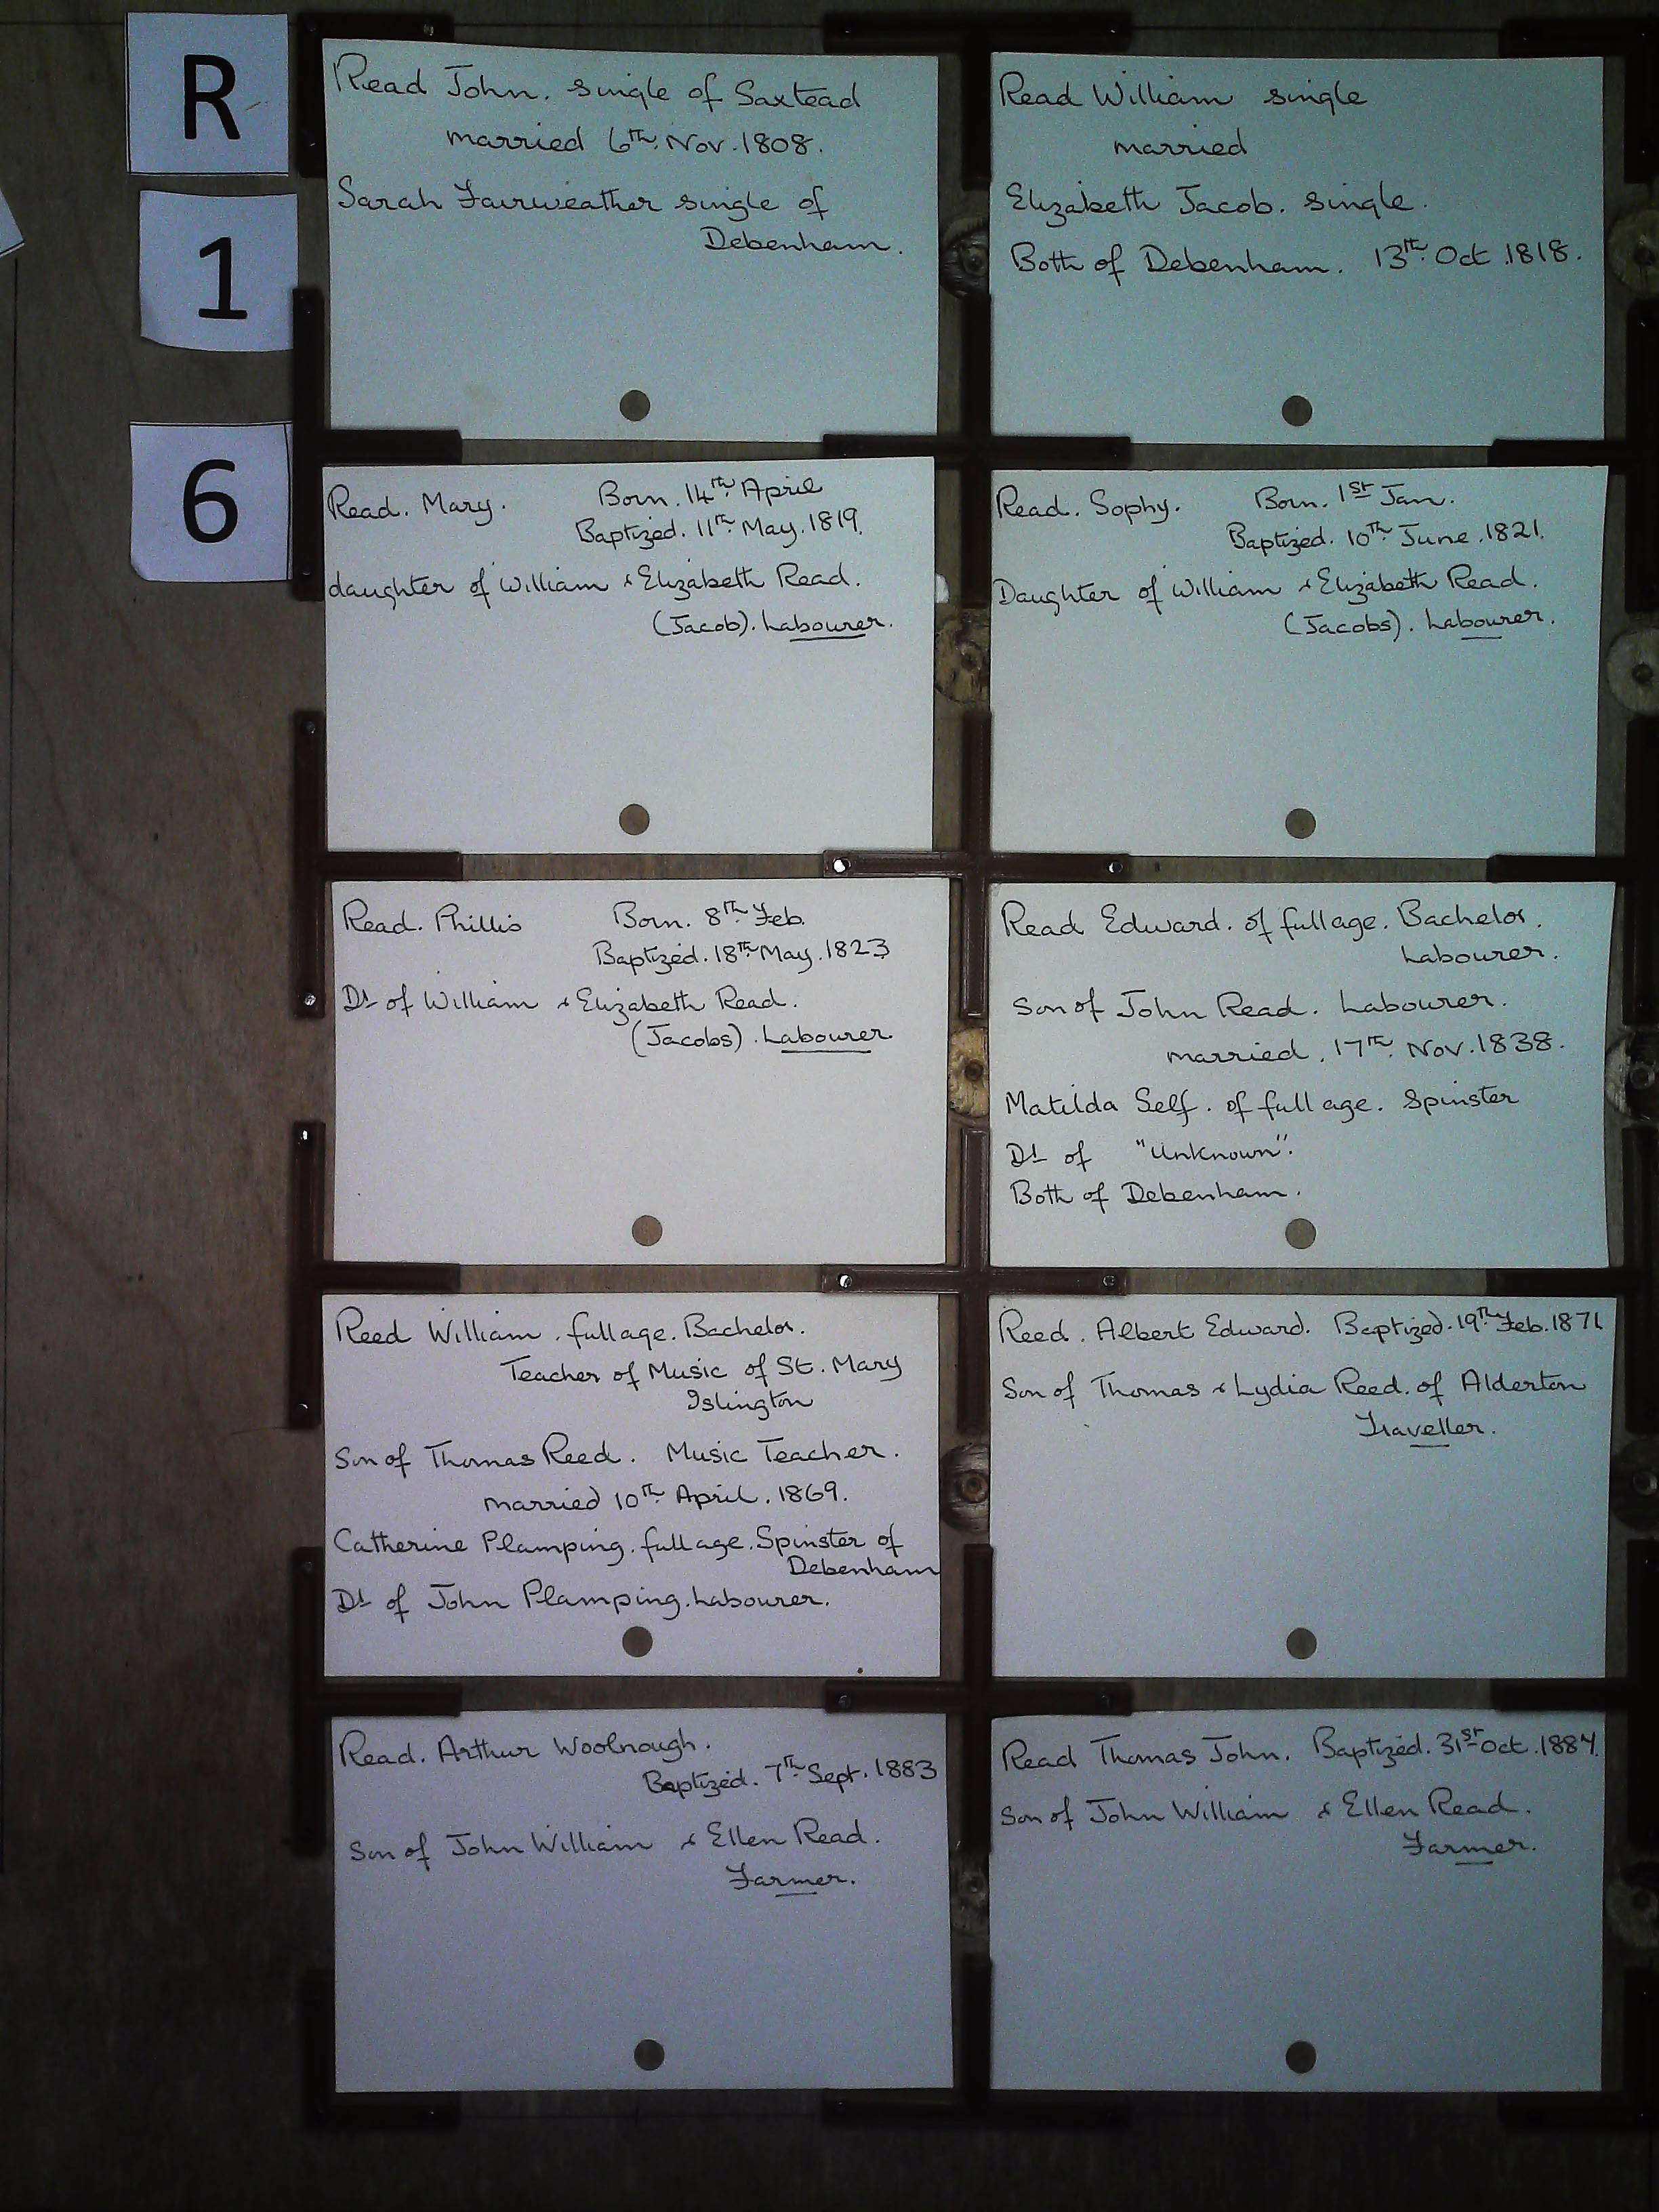 R
1
6
Read John. single of Saxtead
married 6th. Nov. 1808.
Sarah Fairweather single of
Debenham.
Read William single
married
Elizabeth Jacob. single.
Both of Debenham. 13th. Oct. 1818.
Read. Mary. Born. 14th. April
Baptized. 11th. May. 1819.
daughter of William & Elizabeth Read.
(Jacob). Labourer.
Read. Sophy. Born. 1st Jan.
Baptized. 10th. June. 1821.
Daughter of William & Elizabeth Read.
(Jacobs). Labourer.
Read. Phillis Born. 8th Feb.
Baptized. 18th. May. 1823
Dt of William & Elizabeth Read.
(Jacobs). Labourer.
Read Edward. of full age. Bachelor.
Labourer.
Son of John Read. Labourer.
married. 17th. Nov. 1838.
Matilda Self. of full age. Spinster
Dt of "Unknown".
Both of Debenham.
Reed William. full age. Bachelor.
Teacher of Music of St. Mary
Islington
Son of Thomas Reed. Music Teacher.
married 10th. April. 1869.
Catherine Plamping. full age. Spinster of
Debenham
Dt of John Plamping. Labourer.
Reed. Albert Edward. Baptized. 19th. Feb. 1871
Son of Thomas & Lydia Reed. of Alderton
Traveller.
Read. Arthur Woolnough.
Baptized. 7th. Sept. 1883
Son of John William & Ellen Read.
Farmer.
Read Thomas John. Baptized. 31st Oct. 1884.
Son of John William & Ellen Read.
Farmer.